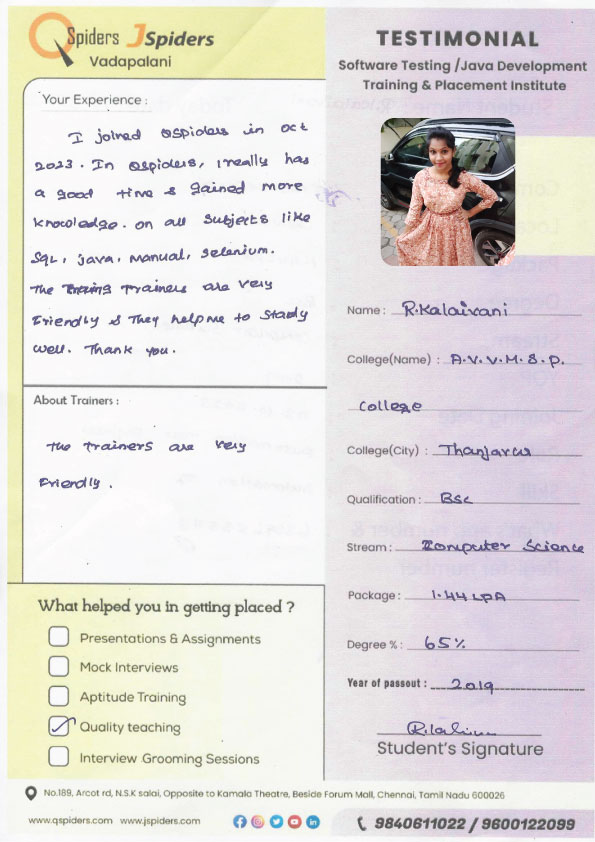 QSpiders JSpiders
Vadapalani
Your Experience :
I joined QSpiders in oct
2023. In QSpiders, I really has
a good time & gained more
knowledge. on all subjects like
SQL, java, manual, selenium.
The Trainers are very
Friendly & They help me to study
well. Thank you.
About Trainers :
The Trainers are very
Friendly.
What helped you in getting placed ?
Presentations & Assignments
Mock Interviews
Aptitude Training
Quality teaching
Interview Grooming Sessions
TESTIMONIAL
Software Testing /Java Development
Training & Placement Institute
Name : R.Kalaivani
College(Name) : A.V.V.M.S.P.
College
College(City) : Thanjavur
Qualification : BSc
Stream : Computer Science
Package : 1.44 LPA
Degree % : 65%
Year of passout : 2019
Student's Signature
No.189, Arcot rd, N.S.K salai, Opposite to Kamala Theatre, Beside Forum Mall, Chennai, Tamil Nadu 600026
www.qspiders.com www.jspiders.com
9840611022 / 9600122099